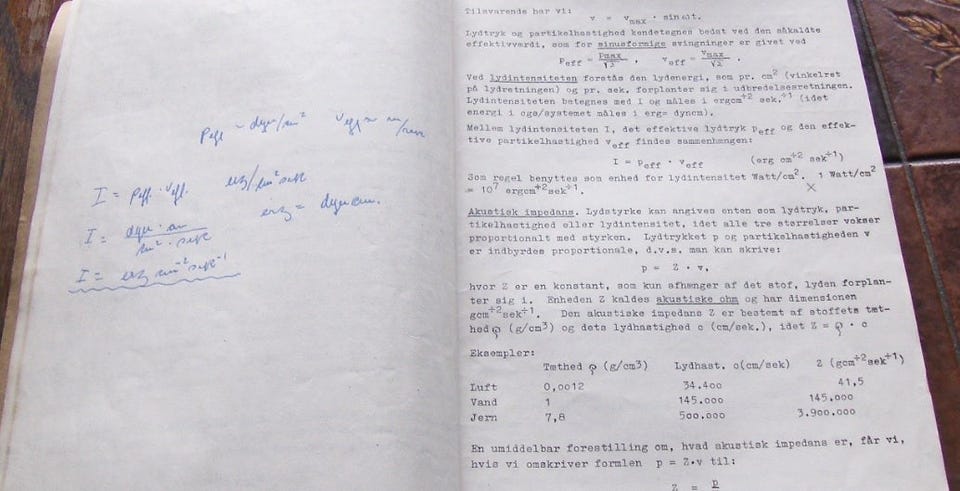 peff ~ dyn/cm² veff ~ cm/sek
I = peff. veff. erg/cm² sek
erg = dyn cm.
I = dyn · cm / cm² · sek
I = erg cm⁻² sek⁻¹
Tilsvarende har vi:
v = vmax · sin ωt.
Lydtryk og partikelhastighed kendetegnes bedst ved den såkaldte
effektivværdi, som for sinusformige svingninger er givet ved
peff = pmax/√2 , veff = vmax/√2 .
Ved lydintensiteten forstås den lydenergi, som pr. cm² (vinkelret
på lydretningen) og pr. sek. forplanter sig i udbredelsesretningen.
Lydintensiteten betegnes med I og måles i ergcm÷2 sek.÷1 (idet
energi i cgs/systemet måles i erg= dyncm).
Mellem lydintensiteten I, det effektive lydtryk peff og den effek-
tive partikelhastighed veff findes sammenhængen:
I = peff · veff (erg cm÷2 sek÷1)
Som regel benyttes som enhed for lydintensitet Watt/cm². 1 Watt/cm²
= 10⁷ ergcm÷2sek÷1.
Akustisk impedans. Lydstyrke kan angives enten som lydtryk, par-
tikelhastighed eller lydintensitet, idet alle tre størrelser vokser
proportionalt med styrken. Lydtrykket p og partikelhastigheden v
er indbyrdes proportionale, d.v.s. man kan skrive:
p = Z · v,
hvor Z er en konstant, som kun afhænger af det stof, lyden forplan-
ter sig i. Enheden Z kaldes akustiske ohm og har dimensionen
gcm÷2sek÷1. Den akustiske impedans Z er bestemt af stoffets tæt-
hed ρ (g/cm3) og dets lydhastighed c (cm/sek.), idet Z = ρ · c
Eksempler:
Tæthed ρ (g/cm3) Lydhast. c(cm/sek) Z (gcm÷2sek÷1)
Luft 0,0012 34.400 41,5
Vand 1 145.000 145.000
Jern 7,8 500.000 3.900.000
En umiddelbar forestilling om, hvad akustisk impedans er, får vi,
hvis vi omskriver formlen p = Z·v til:
Z = p